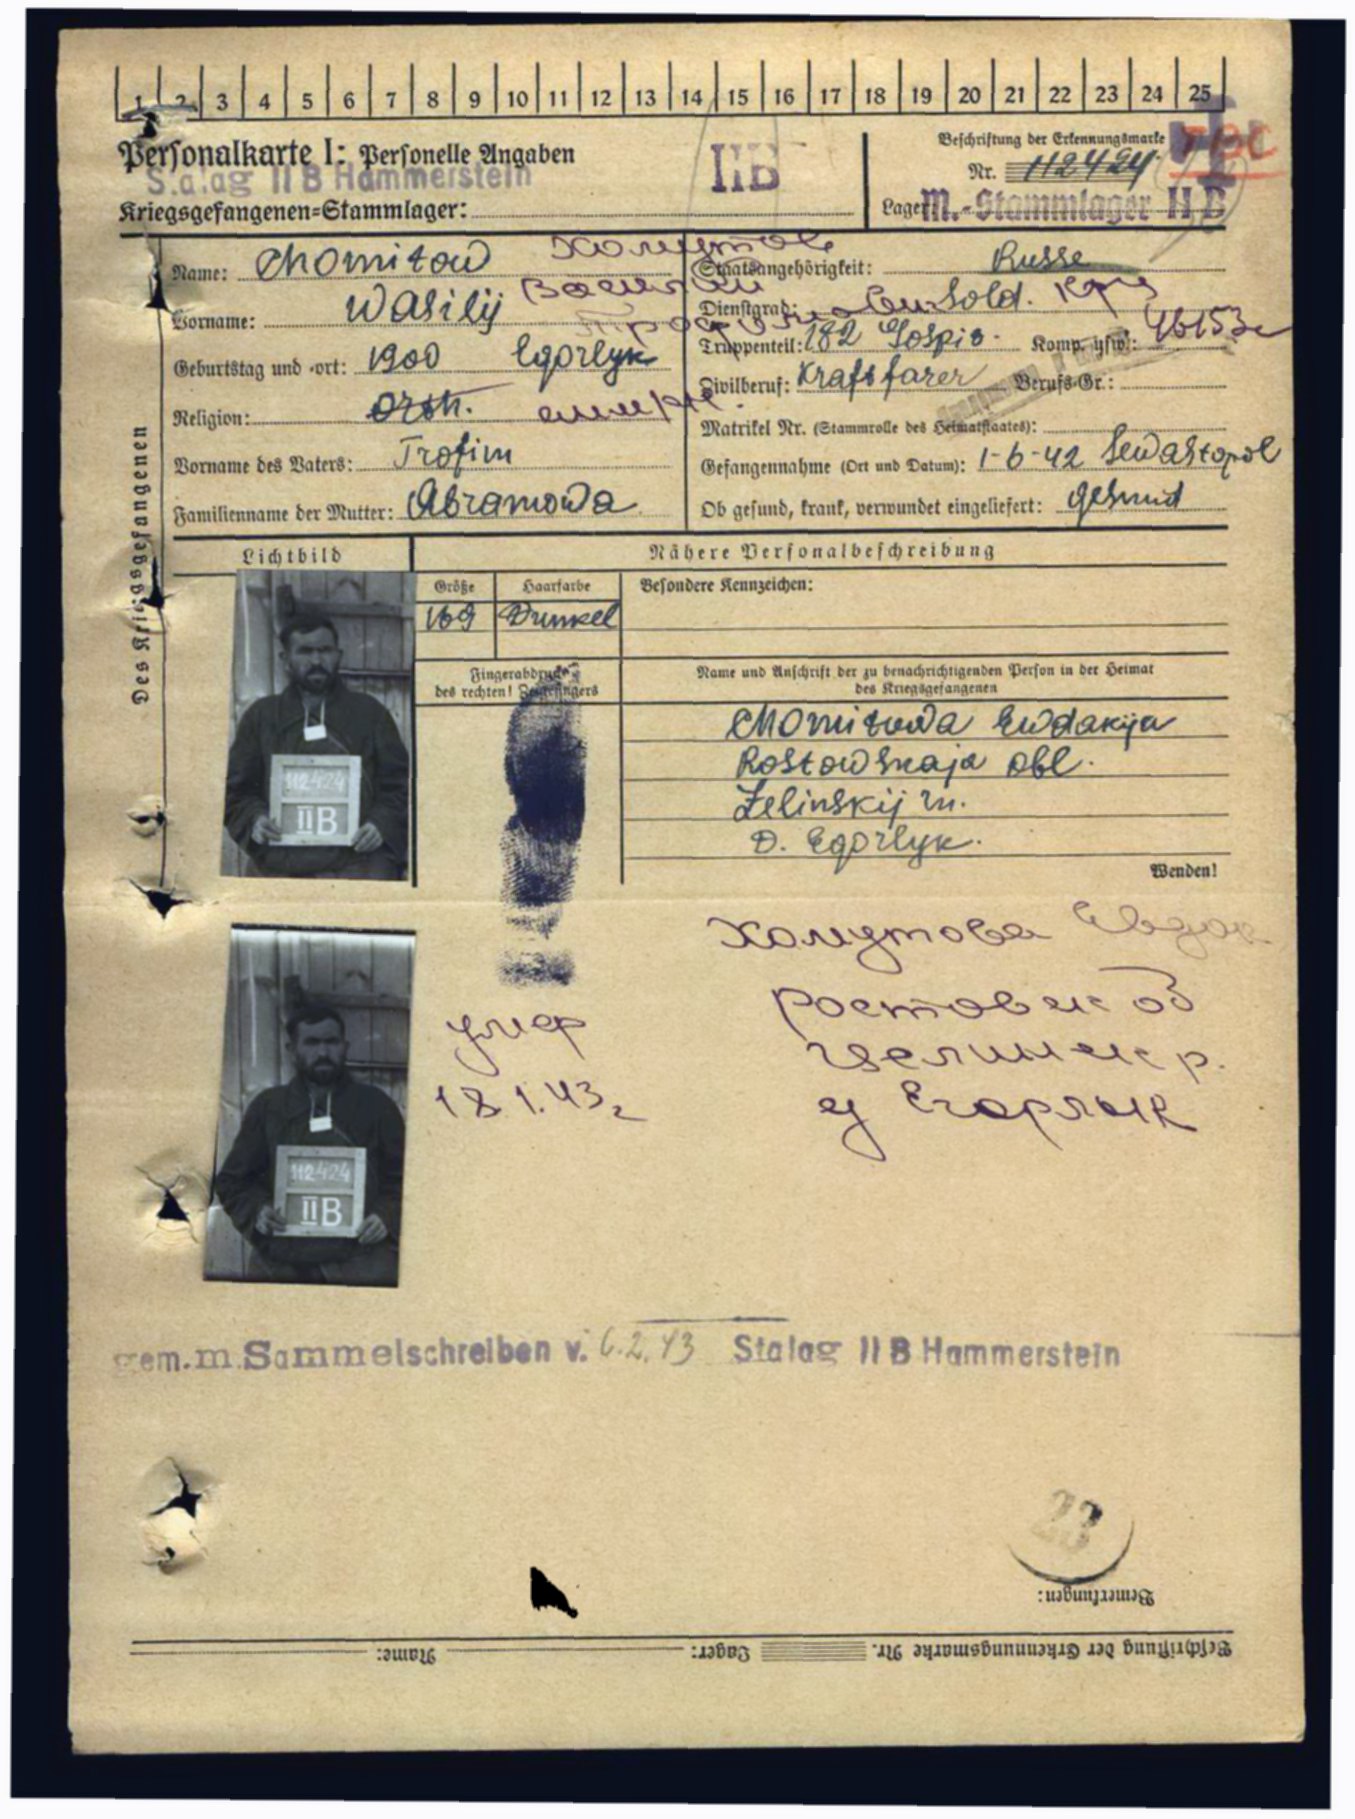 1 2 3 4 5 6 7 8 9 10 11 12 13 14 15 16 17 18 19 20 21 22 23 24 25
Personalkarte I: Personelle Angaben
Stalag II B Hammerstein
Kriegsgefangenen-Stammlager:
II B
Beschriftung der Erkennungsmarke
Nr. 112424
Lager M.-Stammlager II B
Tbc
Des Kriegsgefangenen
Name: Chomitow Хомутов
Vorname: Wasilij Васил
Geburtstag und -ort: 1900 Egorlyk
Religion: orth.
Vorname des Vaters: Trofim
Familienname der Mutter: Abramowa
Staatsangehörigkeit: Russe
Dienstgrad: Sold.
Truppenteil: 182 Gospis. Komp. usw.:
Zivilberuf: Kraftfarer Berufs-Gr.:
Matrikel Nr. (Stammrolle des Heimatstaates):
Gefangennahme (Ort und Datum): 1-6-42 Sewastopol
Ob gesund, krank, verwundet eingeliefert: gesund
Lichtbild
Nähere Personalbeschreibung
Größe Haarfarbe Besondere Kennzeichen:
169 Dunkel
Fingerabdruck
des rechten! Zeigefingers
Name und Anschrift der zu benachrichtigenden Person in der Heimat
des Kriegsgefangenen
Chomitowa Ewdakija
Rostowskaja obl.
Zelinskij
D. Egorlyk.
Wenden!
112424
II B
Хомутова Евдок
Ростовск об
Целинск р.
Егорлык
умер
18.1.43г
112424
II B
gem. m. Sammelschreiben v. 6.2.43 Stalag II B Hammerstein
23
Bemerkungen:
Beschriftung der Erkennungsmarke Nr. Lager: Name: